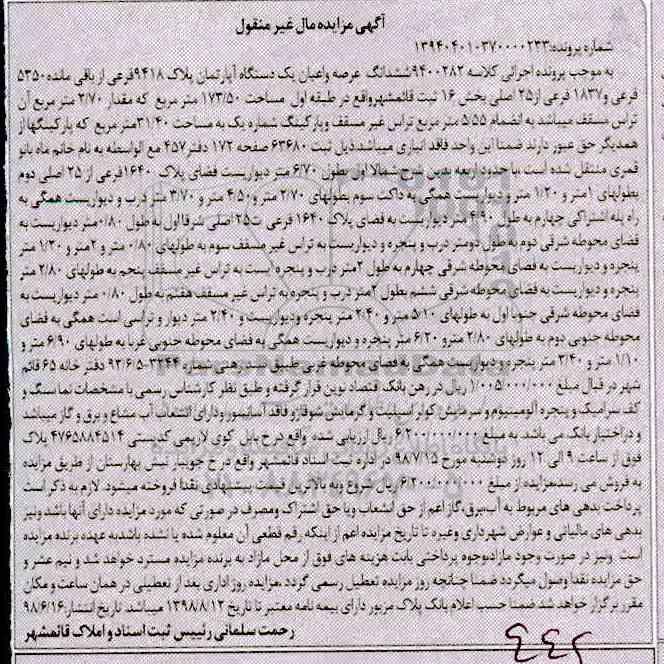 آگهی مزایده مال غیر منقول
شماره پرونده:۱۳۹۴۰۴۰۱۰۳۷۰۰۰۰۲۳۳
به موجب پرونده اجرائی کلاسه ۹۴۰۰۲۸۲ششدانگ عرصه واعیان یک دستگاه آپارتمان پلاک ۹۴۱۸فرعی از باقی مانده۵۳۵۰
فرعی و۱۸۳۷ فرعی از۲۵ اصلی بخش ۱۶ ثبت قائمشهرواقع در طبقه اول مساحت ۱۷۳/۵۰ متر مربع که مقدار ۲/۷۰ متر مربع آن
تراس مسقف میباشد به انضمام ۵/۵۵ متر مربع تراس غیر مسقف وپارکینگ شماره یک به مساحت ۳۱/۴۰متر مربع که پارکینگها از
همدیگر حق عبور دارند ضمنا این واحد فاقد انباری میباشد.ذیل ثبت ۶۳۶۸۰ صفحه ۱۷۲ دفتر۴۵۷ مع الواسطه به نام خانم ماه بانو
قمری منتقل شده است .با حدود اربعه بدین شرح شمالا اول بطول ۶/۷۰ متر دیواریست فضای پلاک ۱۶۴۰فرعی از ۲۵ اصلی دوم
بطولهای ۱متر و ۱/۲۰ متر و دیواریست همگی به داکت سوم بطولهای ۲/۷۰ متر و۴/۵۰ متر و ۳/۷۰ متر درب و دیواریست همگی به
راه پله اشتراکی چهارم به طول ۴/۹۰ متر دیواریست به فضای پلاک ۱۶۴۰ فرعی ت۲۵ اصلی شرقا اول به طول ۰/۸۰متر دیواریست به
فضای محوطه شرقی دوم به طول دومتر درب و پنجره و دیواریست به تراس غیر مسقف سوم به طولهای ۰/۸۰ متر و ۲متر و ۱/۲۰ متر
پنجره و دیواریست به فضای محوطه شرقی چهارم به طول ۲متر درب و پنجره است به تراس غیر مسقف پنجم به طولهای ۲/۸۰ متر
پنجره و دیواریست به فضای محوطه شرقی ششم بطول ۲متر درب و پنجره به تراس غیر مسقف هفتم به طول ۰/۸۰ متر دیواریست به
فضای محوطه شرقی جنوبا اول به طولهای ۵/۱۰ متر و ۲/۴۰ متر پنجره ودیواریست و ۲/۴۰ متر دیوار و تراسی است همگی به فضای
محوطه جنوبی دوم به طولهای ۲/۸۰ مترو ۶/۲۰ متر پنجره و دیواریست همگی به فضای محوطه جنوبی غربا به طولهای ۶/۹۰ متر و
۱/۱۰ متر و ۳/۴۰ متر پنجره و دیواریست همگی به فضای محوطه غربی طبق سند رهنی شماره ۳۲۴۴-۹۳/۶/۵ دفتر خانه ۶۵ قائم
شهر در قبال مبلغ ۱/۰۰۵/۰۰۰/۰۰۰ ریال در رهن بانک اقتصاد نوین قرار گرفته و طبق نظر کارشناس رسمی با مشخصات نما سنگ و
کف سرامیک و پنجره آلومینیوم و سرمایش کولر اسپلیت و گرمایش شوفاژو فاقد آسانسور ودارای انشعاب آب مشاع و برق و گاز میباشد
و دراختیار بانک می باشد. به مبلغ ۶/۲۰۰/۰۰۰/۰۰۰ ریال ارزیابی شده واقع در خ بابل کوی لازیمی کدپستی ۴۷۶۵۸۸۴۵۱۴ پلاک
فوق از ساعت ۹ الی ۱۲ روز دوشنبه مورخ ۹۸/۷/۱۵ در اداره ثبت اسناد قائمشهر واقع در خ جویبار نبش بهارستان از طریق مزایده
به فروش می رسد.مزایده از مبلغ ۶/۲۰۰/۰۰۰/۰۰۰ ریال شروع وبه بالاترین قیمت پیشنهادی نقدا فروخته میشود. لازم به ذکر است
پرداخت بدهی های مربوط به آب،برق،گاز اعم از حق انشعاب ویا حق اشتراک ومصرف در صورتی که مورد مزایده دارای آنها باشد ونیز
بدهی های مالیاتی و عوارض شهرداری وغیره تا تاریخ مزایده اعم از اینکه رقم قطعی آن معلوم شده یا نشده باشدبه عهده برنده مزایده
است ونیز در صورت وجود مازادبوجوه پرداختی بابت هزینه های فوق از محل مازاد به برنده مزایده مسترد خواهد شد و نیم عشر و
حق مزایده نقدا وصول میگردد ضمنا چنانچه روز مزایده تعطیل رسمی گردد ،مزایده روز اداری بعد از تعطیلی در همان ساعت و مکان
مقرر برگزار خواهد شد ضمنا حسب اعلام بانک پلاک مزبور دارای بیمه نامه معتبر تا تاریخ ۱۳۹۸/۸/۱۲ میباشد. تاریخ انتشار:۹۸/۶/۱۶
رحمت سلمانی رئیس ثبت اسناد و املاک قائمشهر